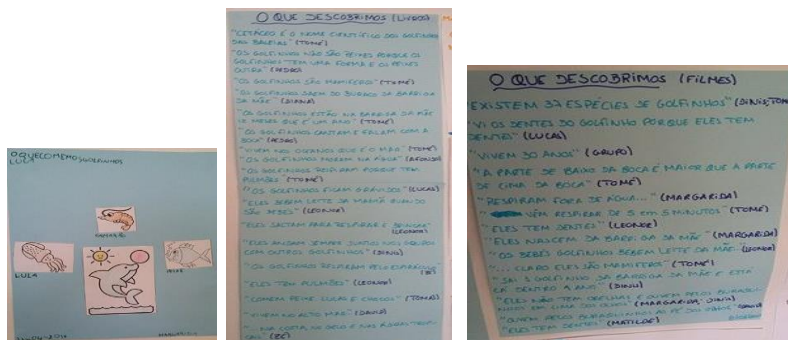 O QUE COMEM OS GOLFINHOS
LULA
CAMARÃO
LULA
PEIXE
MARGARIDA
O QUE DESCOBRIMOS (LIVROS)
"CETÁCEO É O NOME CIENTÍFICO DOS GOLFINHOS
DAS BALEIAS" (TOMÉ)
"OS GOLFINHOS NÃO SÃO PEIXES PORQUE OS
GOLFINHOS TEM UMA FORMA E OS PEIXES
OUTRA" (PEDRO)
"OS GOLFINHOS SÃO MAMIFEROS" (TOMÉ)
"OS GOLFINHOS SAEM DO BURACO DA BARRIGA
DA MÃE" (DIANA)
"OS GOLFINHOS ESTÃO NA BARRIGA DA MÃE
12 MESES QUE É UM ANO" (TOMÉ)
"OS GOLFINHOS CANTAM E FALAM COM A
BOCA" (PEDRO)
"VIVEM NOS OCEANOS QUE É O MAR" (TOMÉ)
"OS GOLFINHOS MORAM NA ÁGUA" (AFONSO)
"OS GOLFINHOS RESPIRAM PORQUE TEM
PULMÕES" (TOMÉ)
"OS GOLFINHOS FICAM GRÁVIDOS" (LUCAS)
"ELES BEBEM LEITE DA MAMÃ QUANDO
SÃO BEBES" (LEONOR)
"ELES SALTAM PARA RESPIRAR E BRINCAR"
(LEONOR)
"ELES ANDAM SEMPRE JUNTOS NOS GRUPOS
COM OUTROS GOLFINHOS" (DINIS)
"OS GOLFINHOS RESPIRAM PELO ESPIRÁCULO"
"ELES TEM PULMÕES" (LEONOR)
"COMEM PEIXE LULAS E CHOCOS" (TOMÁS)
"VIVEM NO ALTO MAR" (DAVID)
"... NA COSTA, NO GELO E NOS RIOS
(ZÉ)
O QUE DESCOBRIMOS (FILMES)
"EXISTEM 37 ESPÉCIES DE GOLFINHOS" (DINIS; TOMÉ
"VI OS DENTES DO GOLFINHO PORQUE ELES TEM
DENTES" (LUCAS)
"VIVEM 30 ANOS" (GRUPO)
"A PARTE DE BAIXO DA BOCA É MAIOR QUE A PARTE
DE CIMA DA BOCA" (TOMÉ)
"RESPIRAM FORA DE ÁGUA..." (MARGARIDA)
" VÊM RESPIRAR DE 5 EM 5 MINUTOS" (TOMÉ)
"ELES TEM DENTES" (LEONOR)
"ELES NASCEM DA BARRIGA DA MÃE" (MARGARIDA)
"OS BEBÉS GOLFINHOS BEBEM LEITE DA MÃE" (LEONOR)
"... CLARO ELES SÃO MAMIFEROS" (TOMÉ)
"SAI O GOLFINHO DA BARRIGA DA MÃE E ESTÁ
LÁ DENTRO 1 ANO" (DINIS)
"ELES NÃO TEM ORELHAS E OUVEM PELOS BURAQUI-
NHOS EM CIMA DOS OLHOS" (MARGARIDA; DINIS)
"OUVEM PELOS BURAQUINHOS AO PÉ DOS OLHOS"
"ELES TEM DENTES" (MATILDE)